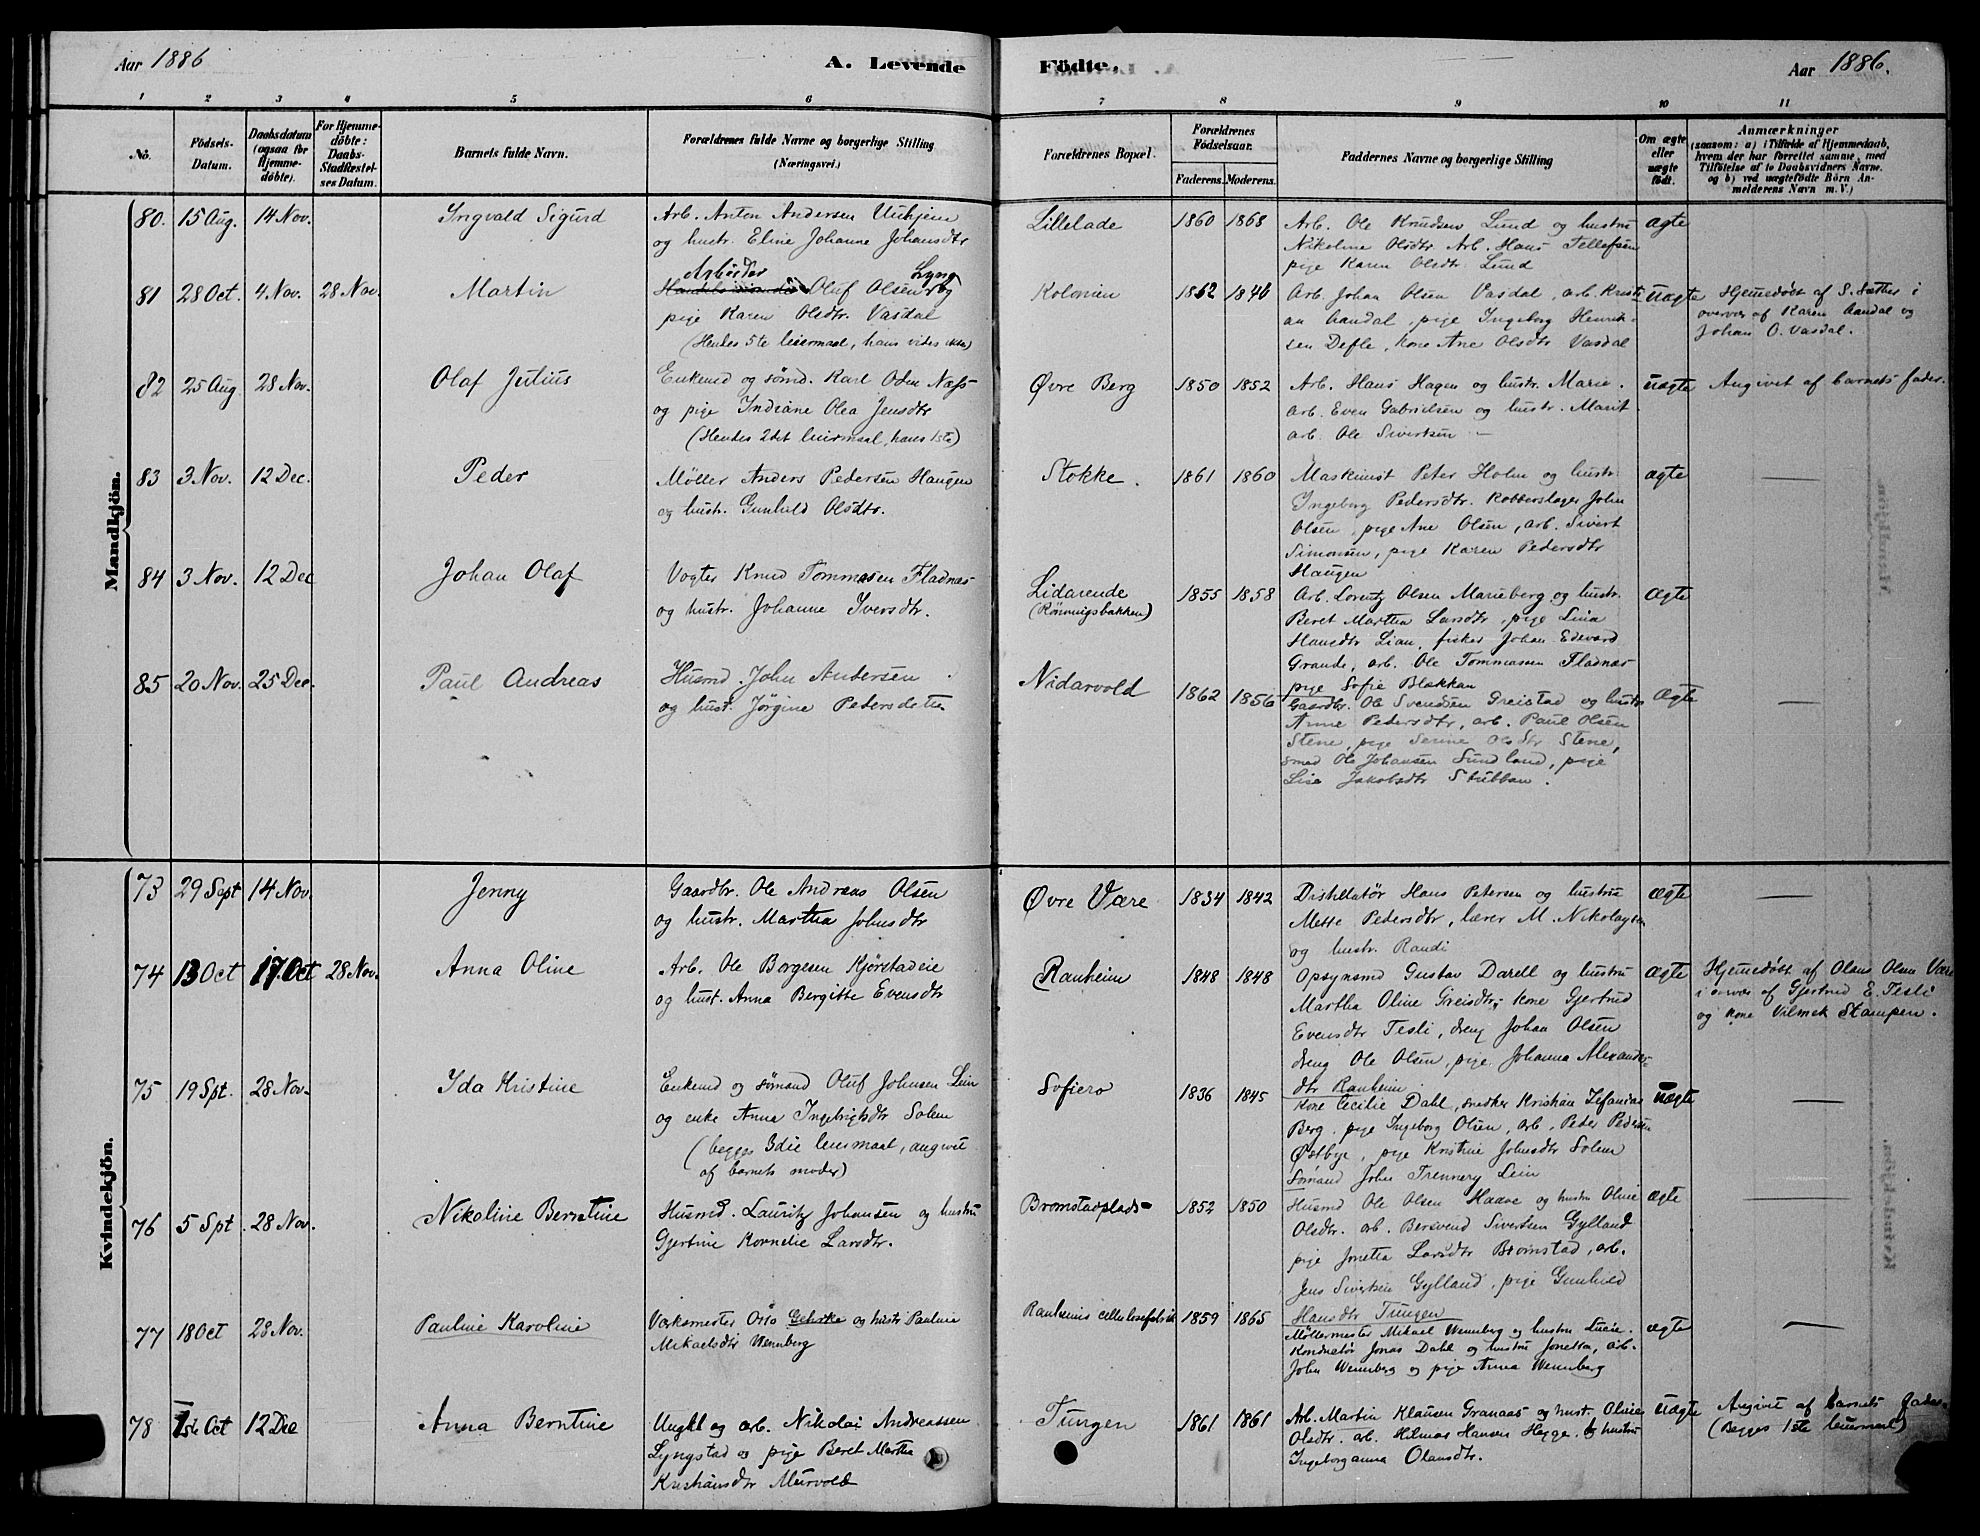 Aar 1886
A. Levende
Födte.
Aar 1886.
1 2 3 4 5 6 7 8 9 10 11
No.
Födsels-
Datum.
Daabsdatum
(ogsaa for
Hjemme-
döbte).
For Hjemme-
döbte:
Daabs-
Stadfæstel-
ses Datum.
Barnets fulde Navn.
Forældrenes fulde Navne og borgerlige Stilling
(Næringsvei.)
Forældrenes Bopæl.
Forældrenes
Födselsaar.
Faderens. Moderens.
Faddernes Navne og borgerlige Stilling
Om ægte
eller
uægte
födt.
Anmærkninger
(saasom: a) i Tilfælde af Hjemmedaab,
hvem der har forrettet samme, med
Tilföielse af to Daabsvidners Navne,
og b) ved uægtefödte Börn An-
melderens Navn m. V.)
Mandkjön.
80. 15 Aug. 14 Nov. Ingvald Sigurd
Arb. Anton Andersen
og hustr. Eline Johanne Johansdtr
Lillelade 1860 1868
Arb. Ole Knudsen Lund og hustru
Nikoline Olsdtr. Arb. Hans Tellefsen
pige Karen Olsdtr. Lund
ægte
81 28 Oct. 4 Nov. 28 Nov. Martin
Arbeider Lyng
Oluf Olsen og
pige Karen Olsdtr. Vasdal
(Hendes 5te leiermaal, hans vides ikke)
Kolonien 1852 1846
Arb. Johan Olsen Vasdal, arb. Kristi-
an Aandal, pige Ingeborg Henrik-
sen Defle, kone Ane Olsdtr Vasdal
uægte
Hjemmedøbt af S. Sæther i
overvær af Karen Aandal og
Johan O. Vasdal.
82 25 Aug. 28 Nov. Olaf Julius
Enkemd og sømd. Karl Odin Næss
og pige Indiane Olea Jensdtr
(Hendes 2det leiermaal, hans 1ste)
Øvre Berg 1850 1852
Arb. Hans Hagen og hustr. Marie.
arb. Even Gabrielsen og hustr. Marit
arb. Ole Sivertsen —
uægte
Angivet af barnets fader.
83 3 Nov. 12 Dec. Peder
Møller Anders Pedersen Haugen
og hustr. Gunhild Olsdtr.
Stokke. 1861 1860
Maskinist Peter Holm og hustr.
Ingeborg Pedersdtr. Kobberslager John
Olsen, pige Ane Olsen, arb. Sivert
Simonsen, pige Karen Pedersdtr
Haugen
ægte
84 3 Nov. 12 Dec Johan Olaf
Vogter Knud Tommesen Fladnæs
og hustr. Johanne Iversdtr.
Lidarende
(Rönningsbakken)
1855 1858
Arb. Lorentz Olsen Marieberg og hustr.
Beret Martha Larsdtr, pige Lina
Hansdtr Lian, fisker Johan Edvard
Grande, arb. Ole Tommasen Fladnæs
pige Sofie Blækkan
ægte
85 20 Nov. 25 Dec. Paul Andreas
Husmd. John Andersen
og hust. Jørgine Pedersdatter
Nidarvold 1862 1856
Gaardbr. Ole Svendsen Greistad og hustru
Anne Pedersdtr, arb. Paul Olsen
Stene, pige Serine Olsdtr Stene,
smed Ole Johansen Sundland, pige
Lise Jakobsdtr Stubban.
Ægte
Kvindekjön.
73 29 Sept 14 Nov. Jenny
Gaardbr. Ole Andreas Olsen
og hustr. Martha Johnsdtr
Øvre Være 1834 1842
Distillatør Hans Petersen og hustru
Mette Pedersdtr, lærer M. Nikolaysen
og hustr. Randi
ægte
74 13 Oct 17. Oct 28 Nov. Anna Oline
Arb. Ole Borgesen Kjørstadeie
og hust. Anna Bergitte Evensdtr
Ranheim 1848 1848
Opsynsmd Gustav Darell og hustru
Martha Oline Greisdtr, kone Gjertrud
Evensdtr Tesli, dreng Johan Olsen
dreng Ole Olsen, pige Johanna Alexander-
dtr Ranheim.
ægte
Hjemmedøbt af Olaus Olsen Være
i overvær af Gjertrud E. Tesli
og kone Stampen.
75 19 Spt. 28 Nov. Ida Kristine
Enkemd og sømand Oluf Johnsen Lein
og enke Anna Ingebrigtsdtr Solem
(begges 3die leiermaal, angivet
af barnets moder)
Sofiero 1836 1845
Kone Cecilie Dahl, snedker Kristian Zefanias
Berg. pige Ingeborg Olsen, arb. Peter Pedersen
Østbye, pige Kristine Johnsdtr Solem
Sömand John Lein
uægte
76 5 Spt 28 Nov. Nikoline Berntine
Husmd. Lauritz Johansen og hustru
Gjertine Kornelie Larsdtr.
Bromstadplads 1852 1850
Husmd Ole Olsen Haave og hustru Oline
Olsdtr. arb. Bersvend Sivertsen Gylland
pige Jonetta Larsdtr Bromstad, arb.
Jens Sivertsen Gylland, pige Gunhild
Hansdtr Tungen
ægte
77 18 Oct 28 Nov. Pauline Karoline
Værksmester Otto Gehrke og hustr Pauline
Mikaelsdtr Wennberg
Ranheims cellulosefabrik 1859 1865
Møllermester Mikael Wennberg og hustru Lucie.
Konduktør Jonas Dahl og hustru Jonetta, arb.
John Wennberg og pige Anna Wennberg
ægte
78 1ste Oct 12 Dec Anna Berntine
Ungkl og arb. Nikolai Andreassen
Lyngstad og pige Beret Martha
Kristiansdtr Mervold
Tungen 1861 1861
Arb. Martin Klausen Granaas og hust. Oline
Olsdtr. arb. Hilmar Hansen Hegge. og hustru
Ingeborganna Olausdtr.
uægte
Angivet af barnets fader.
(Begges 1ste leiermaal)